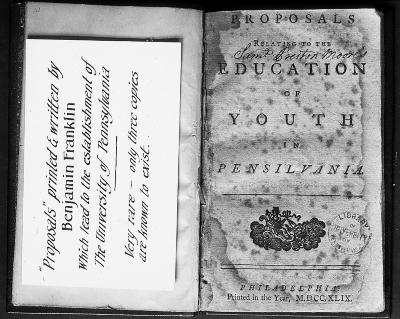 "Proposals" printed & written by
Benjamin Franklin
which lead to the establishment of
The University of Pennsylvania
Very rare - only three copies
are known to exist.
PROPOSALS
RELATING TO THE
EDUCATION
OF
YOUTH
IN
PENSILVANIA.
LIBRARY
OF
UNIVERSITY
PHILADELPHIA:
Printed in the Year, M.DCC.XLIX.